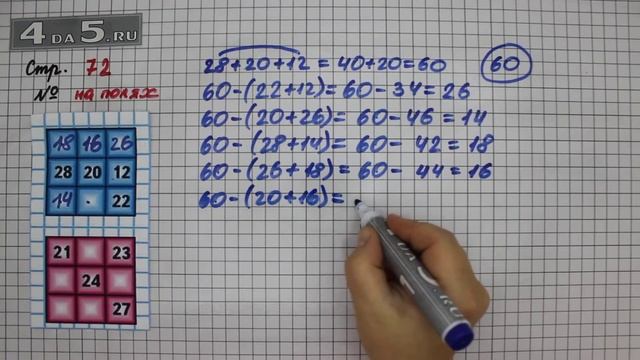 4 DA 5.RU
Стр. 72
№ на полях
28+20+12 = 40+20=60
60
60-(22+12)= 60-34=26
60-(20+26)= 60-46=14
60-(28+14)= 60- 42=18
60-(26+18)= 60- 44=16
60-(20+16)=
18 16 26
28 20 12
14 . 22
21 23
24
27
DA 5.RU